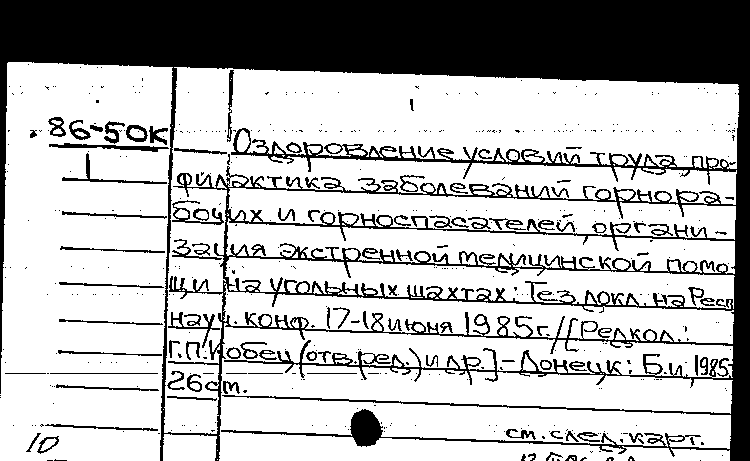 86-50К
1
Оздоровление условий труда, про-
филактика заболеваний горнора-
бочих и горноспасателей, органи-
зация экстренной медицинской помо-
щи на угольных шахтах: Тез. докл. на Респ
науч. конф. 17-18 июня 1985 г. / [Редкол.:
Г.П. Кобец (отв. ред.) и др.]. - Донецк: Б.и., 1985.
26 ст.
см. след. карт.
10